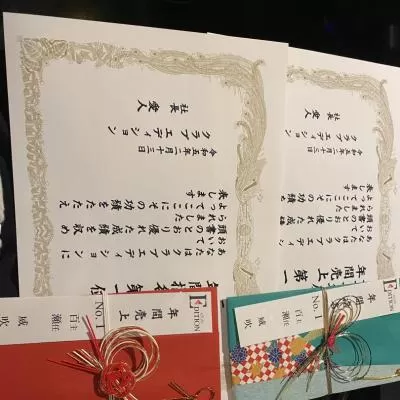 あなたはクラブエディションに
おいて頭書のとおり優れた成績を収め
られました
よってここにその功績をたたえ
表します
令和五年一月十三日
クラブエディション
社長 愛人
年間売上 第一
あなたはクラブエディ
おいて頭書のとおり優れた成績
られました
よってここにその功績
表します
令和五年一月十三日
クラブエディション
社長 愛人
EDITION
年間売上
No.1
主任
百瀬 威吹
EDITION
年間売上
No.1
主任
百瀬 威吹